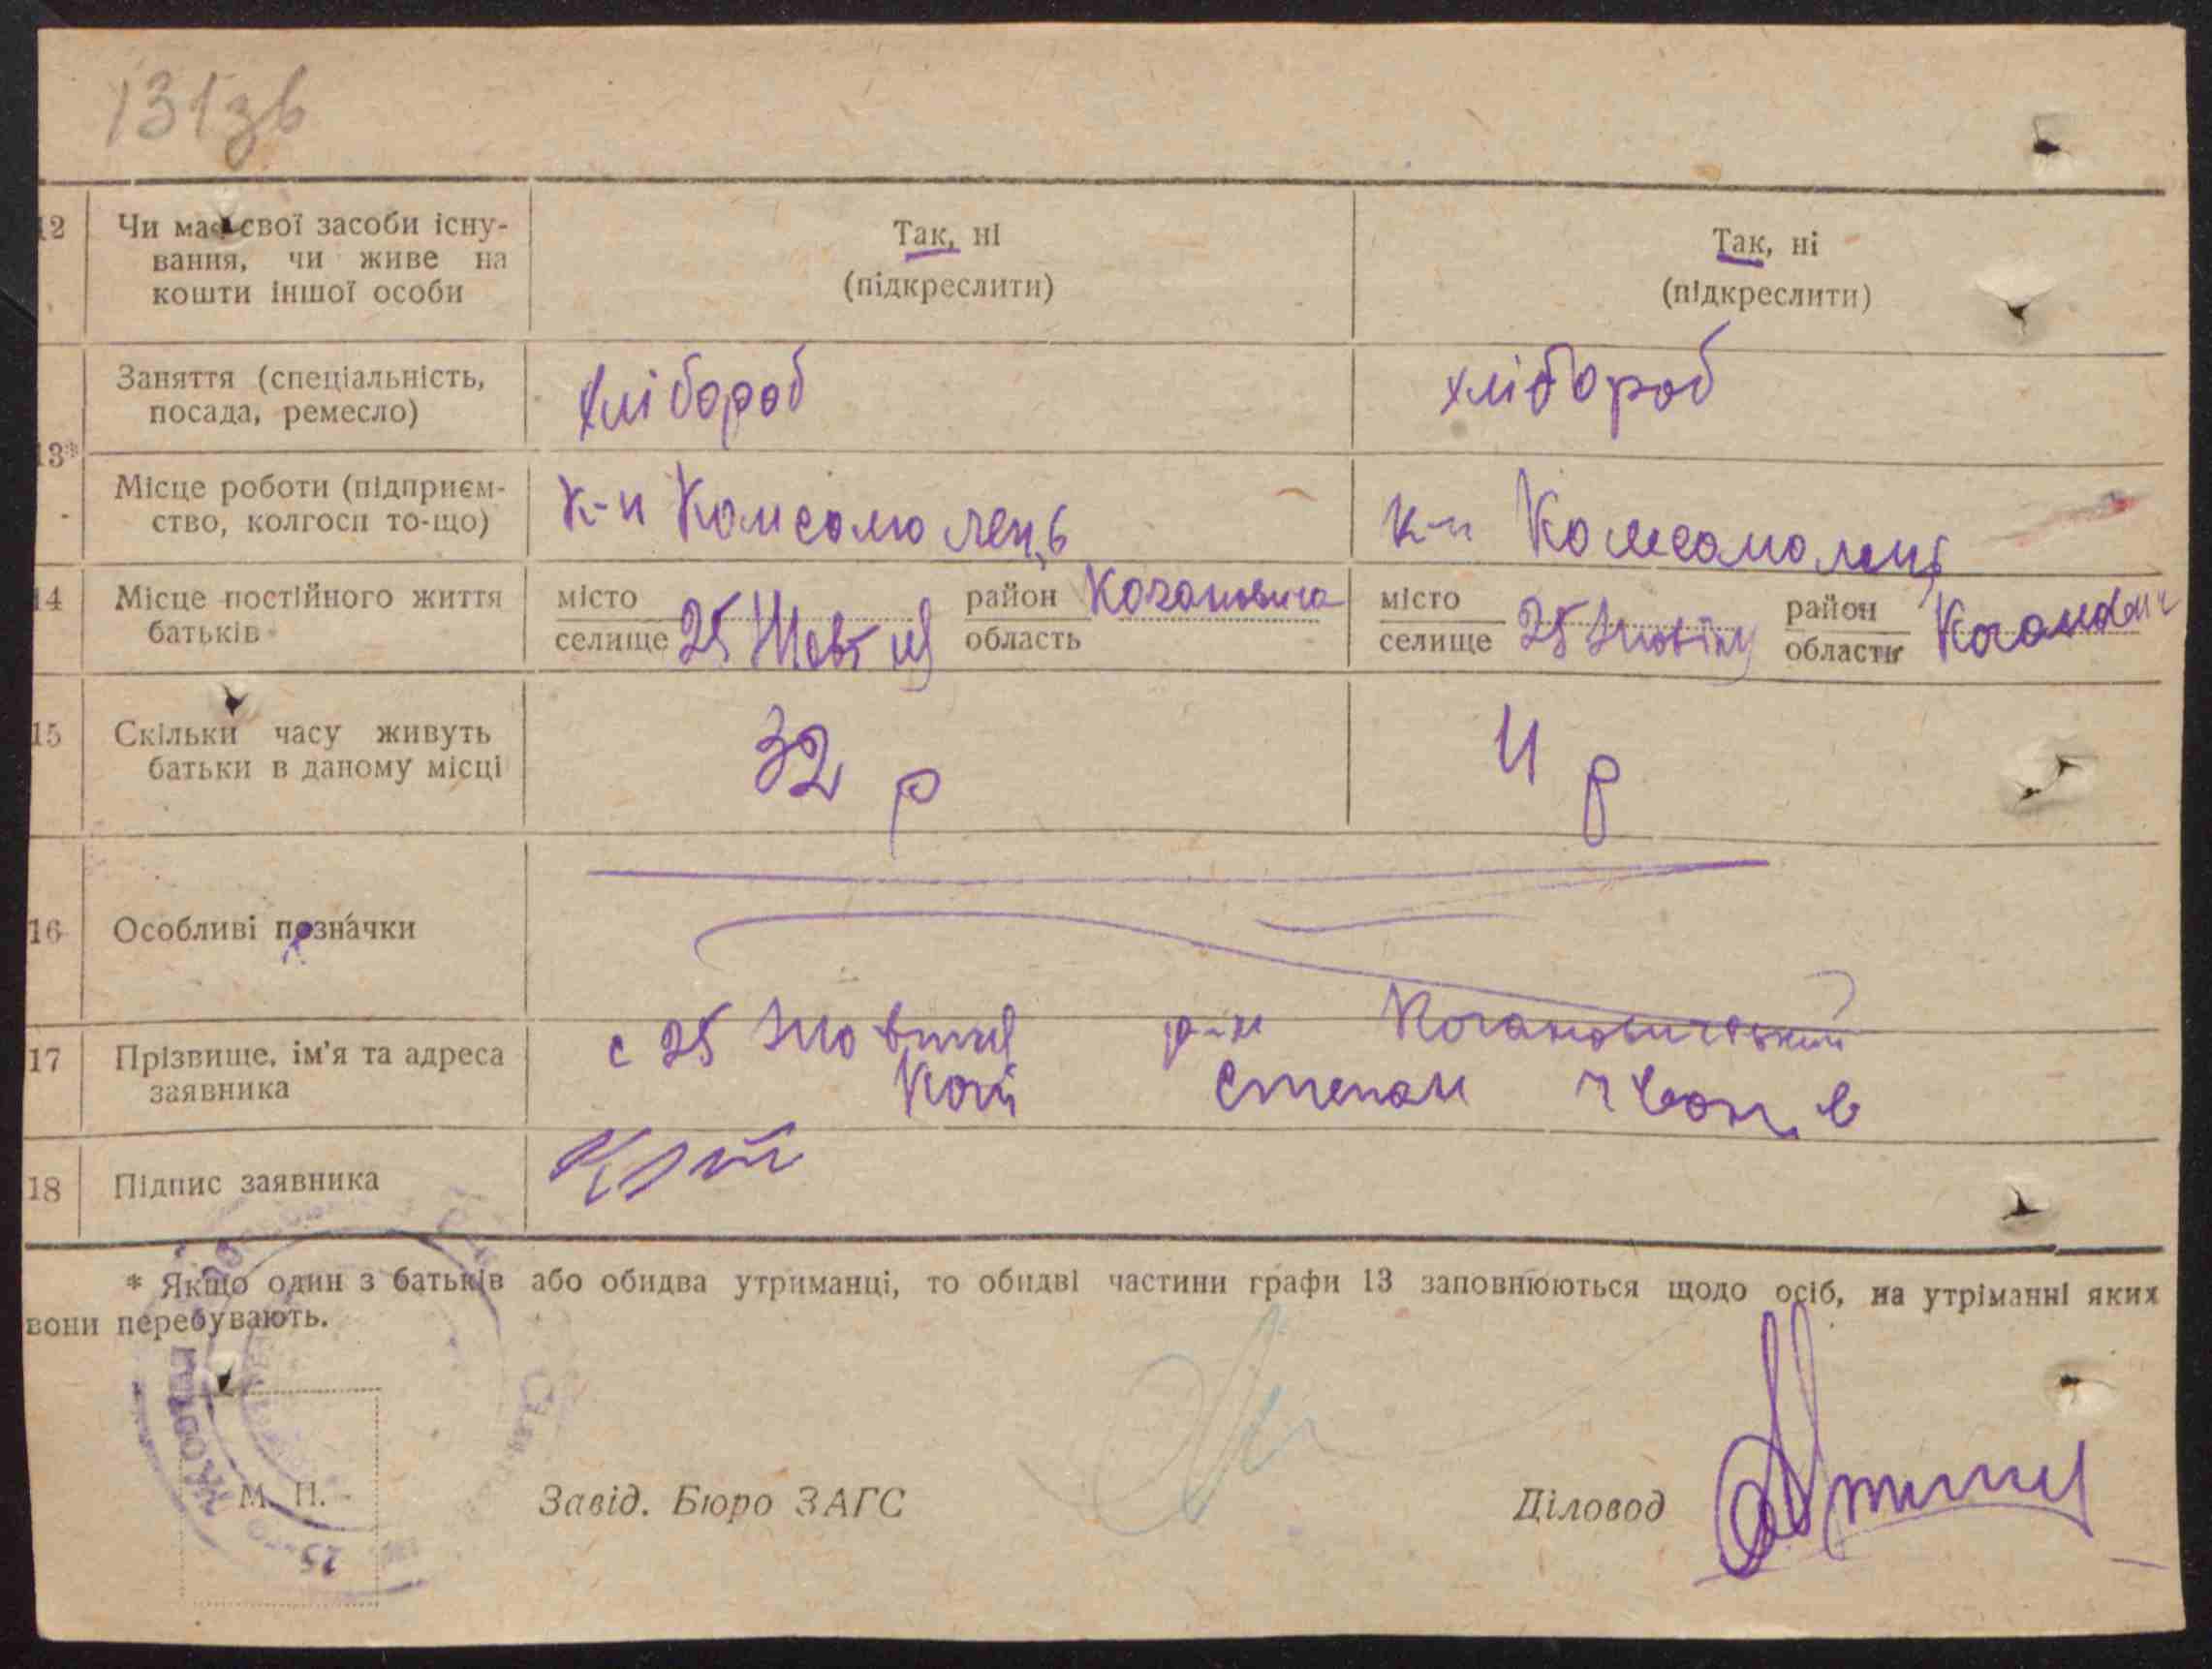 131зв
12 Чи має свої засоби існу- Так, ні Так, ні
вання, чи живе на (підкреслити) (підкреслити)
кошти іншої особи
Заняття (спеціальність, хлібороб хлібороб
посада, ремесло)
13*
Місце роботи (підприєм- к-п Комсомолець к-п Комсомолець
ство, колгосп то-що)
14 Місце постійного життя місто 25 Жовтня район Кагановича місто 25 Жовтня район Каганович
батьків селище область селище области
15 Скільки часу живуть 32 р 4 р
батьки в даному місці
16 Особливі позначки
с 25 Жовтня р-н Кагановичський
17 Прізвище, ім'я та адреса
заявника Степан
18 Підпис заявника
* Якщо один з батьків або обидва утриманці, то обидві частини графи 13 заповнюються щодо осіб, на утріманні яких
вони перебувають.
М. П. Завід. Бюро ЗАГС Діловод